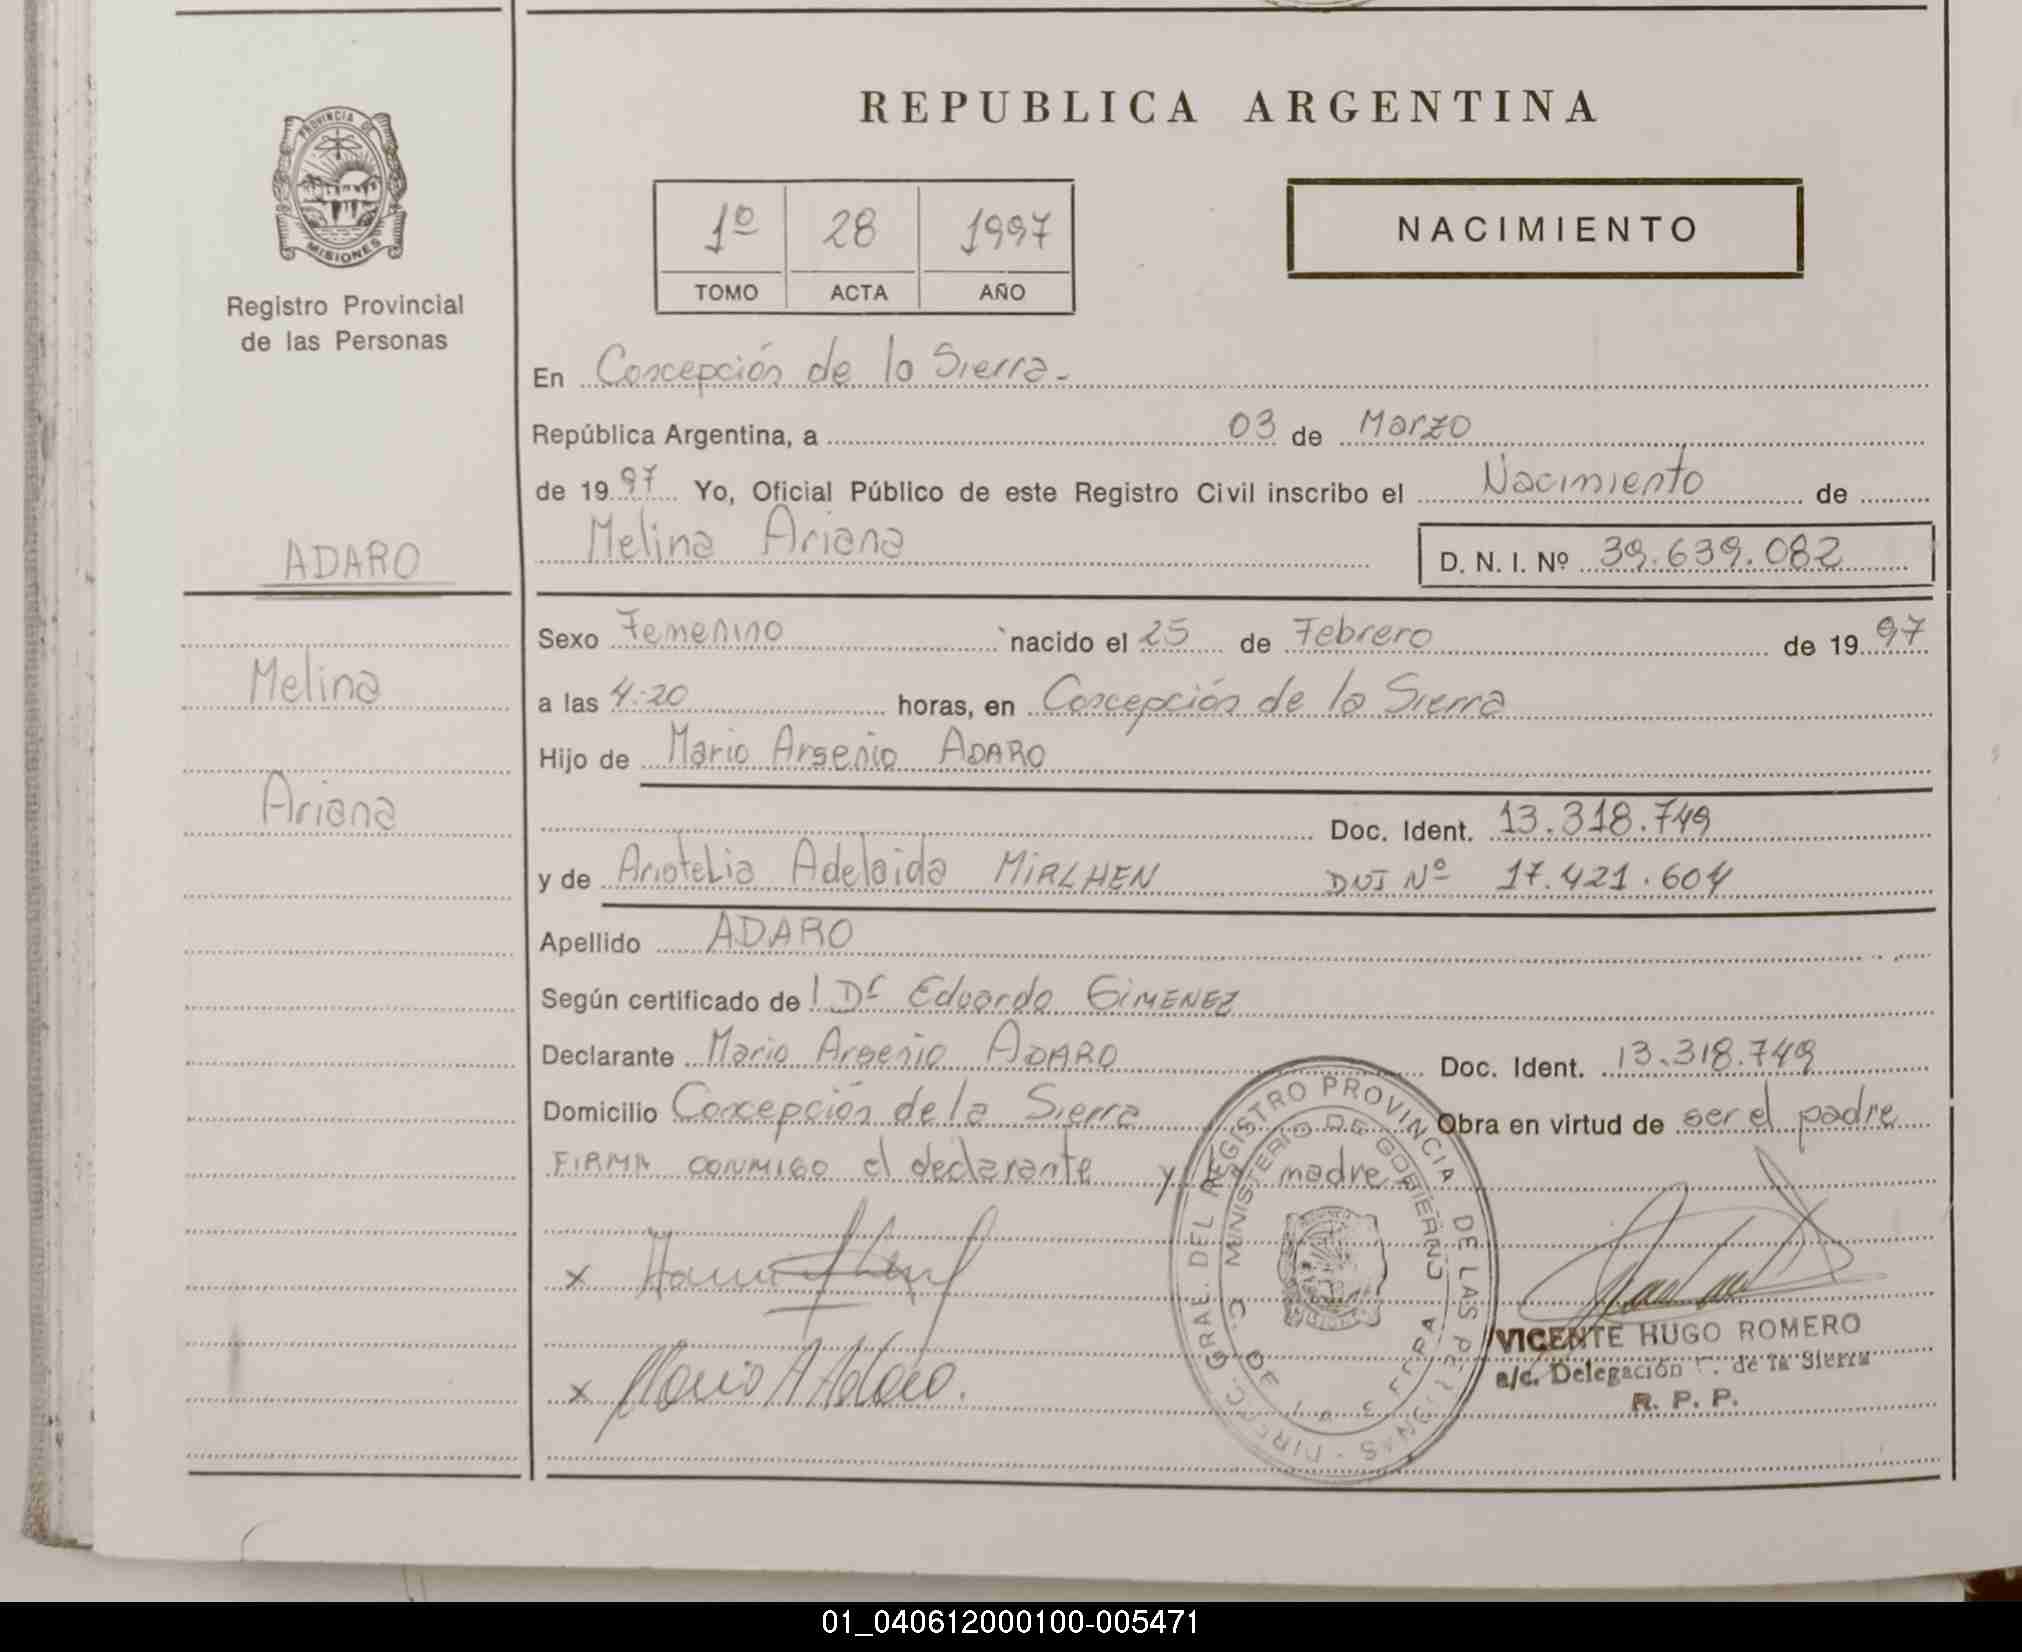 REPUBLICA ARGENTINA
PROVINCIA DE
MISIONES
Registro Provincial
de las Personas
1º 28 1997
TOMO ACTA AÑO
NACIMIENTO
En Concepción de la Sierra.-
República Argentina, a 03 de Marzo
de 1997 Yo, Oficial Público de este Registro Civil inscribo el Nacimiento de
Melina Ariana
D. N. I. Nº 39.639.082
ADARO
Melina
Ariana
Sexo Femenino nacido el 25 de Febrero de 1997
a las 4:20 horas, en Concepción de la Sierra
Hijo de Mario Arsenio ADARO
Doc. Ident. 13.318.749
y de Adelaida MIRLHEN DNI Nº 17.421.604
Apellido ADARO
Según certificado de l Dr Eduardo GIMENEZ
Declarante Mario Arsenio ADARO Doc. Ident. 13.318.749
Domicilio Concepción de la Sierra Obra en virtud de ser el padre
FIRMA CONMIGO el declarante y la madre
x
x Mario A Adaro.
DIREC. GRAL. DEL REGISTRO PROVINCIAL DE LAS PERSONAS
MINISTERIO DE GOBIERNO
MISIONES
VICENTE HUGO ROMERO
a/c. Delegación C. de la Sierra
R. P. P.
01_040612000100-005471